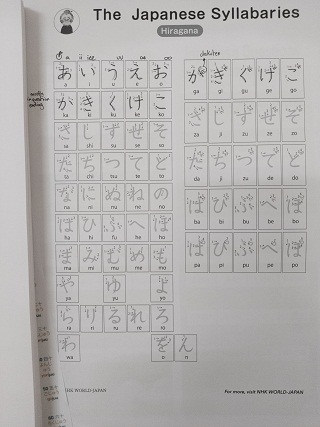 The Japanese Syllabaries
Hiragana
あ い う え お
a i u e o
か き く け こ
ka ki ku ke ko
さ し す せ そ
sa shi su se so
た ち つ て と
ta chi tsu te to
な に ぬ ね の
na ni nu ne no
は ひ ふ へ ほ
ha hi fu he ho
ま み む め も
ma mi mu me mo
や ゆ よ
ya yu yo
ら り る れ ろ
ra ri ru re ro
わ を ん
wa o n
dakuten
が ぎ ぐ げ ご
ga gi gu ge go
ざ じ ず ぜ ぞ
za ji zu ze zo
だ ぢ づ で ど
da ji zu de do
ば び ぶ べ ぼ
ba bi bu be bo
ぱ ぴ ぷ ぺ ぽ
pa pi pu pe po
NHK WORLD-JAPAN
For more, visit NHK WORLD-JAPAN